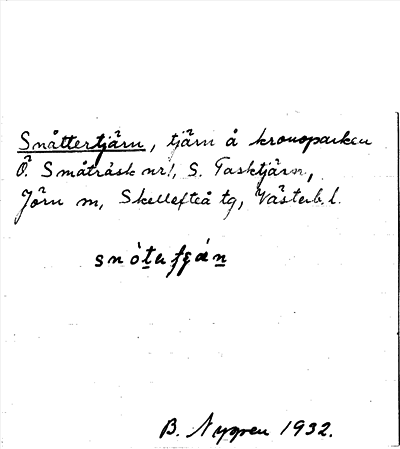 Snåttertjärn, tjärn å kronoparken
Ö. Småträsk nr 1, S. Tasktjärn,
Jörn sn, Skellefteå tg, Västerb. l.
B. Nygren 1932.